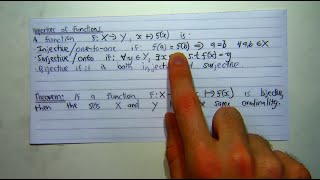 Properties of Functions
A function f: X → Y, x ↦ f(x) is:
- Injective/one-to-one if: f(a) = f(b) ⇒ a=b ∀ a,b ∈ X
- Surjective/onto if: ∀ y ∈ Y, ∃ x s.t f(x) = y
- Bijective if it is both injective and surjective
Theorem: If a function f: X ↦ f(x) is bijective,
then the sets X and Y the same cardinality.